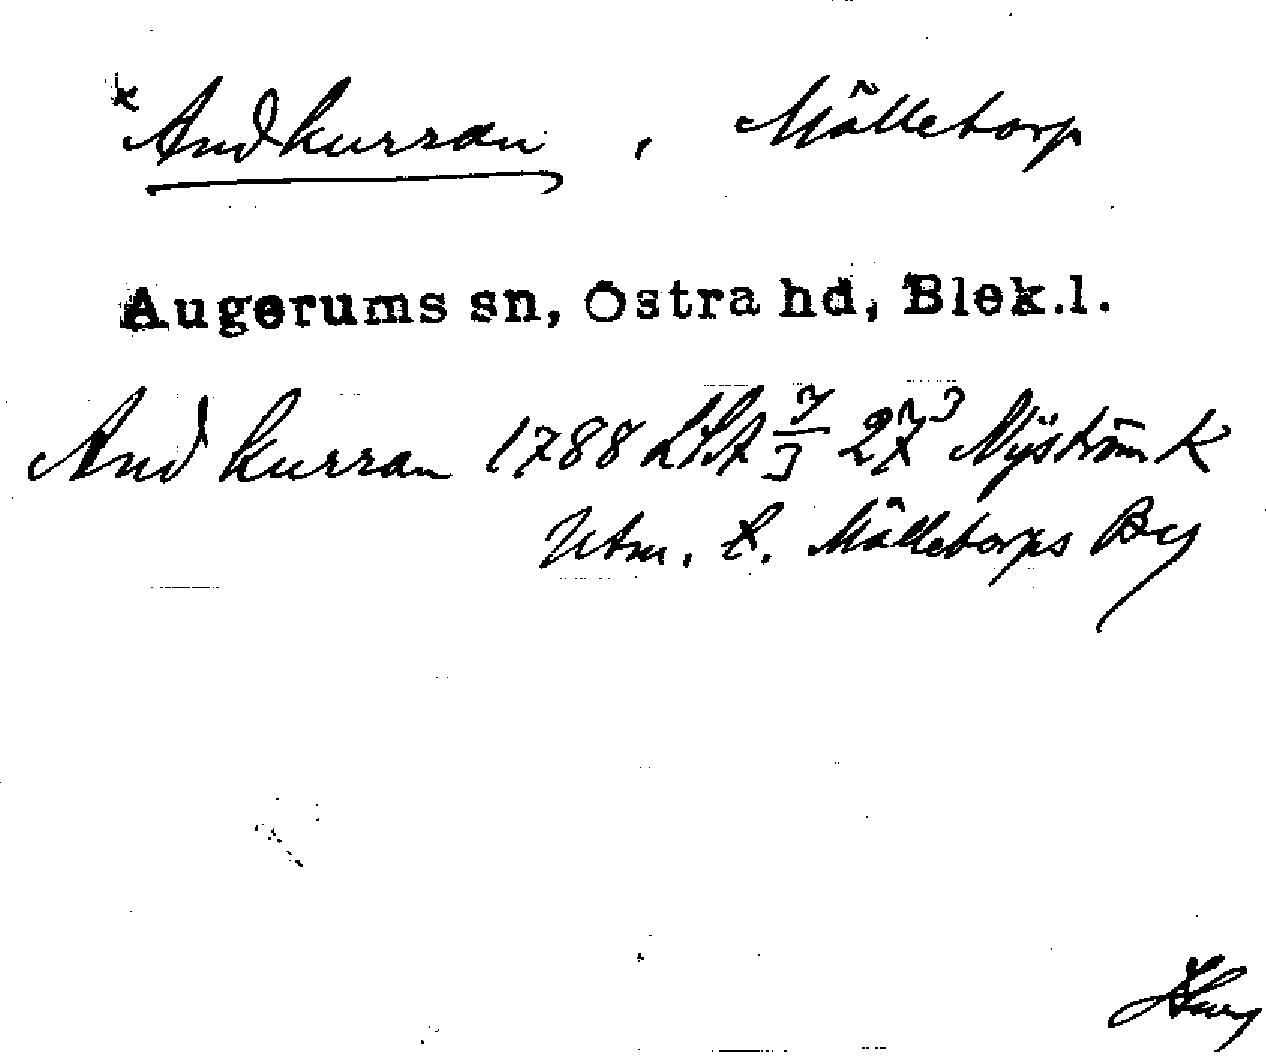 * Andkurran, Mölletorp
Augerums sn, Östra hd, Blek.l.
And kurran 1788 LSA 7/3 27³ Nyström K
Utm. t. Mölletorps By